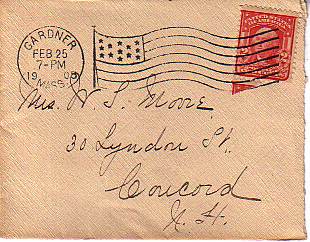 GARDNER
FEB 25
7-PM
MASS.
UNITED STATES
Mrs. W. S. Moore,
30 Lyndon St.
Concord
N. H.